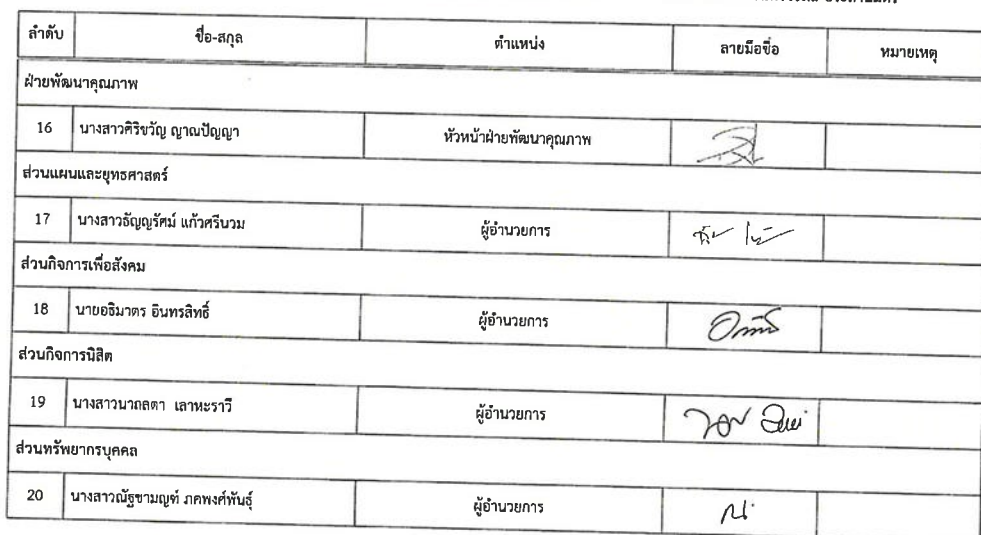 ลำดับ ชื่อ-สกุล ตำแหน่ง ลายมือชื่อ หมายเหตุ
ฝ่ายพัฒนาคุณภาพ
16 นางสาวศิริขวัญ ญาณปัญญา หัวหน้าฝ่ายพัฒนาคุณภาพ
ส่วนแผนและยุทธศาสตร์
17 นางสาวธัญญรัศม์ แก้วศรีนวม ผู้อำนวยการ
ส่วนกิจการเพื่อสังคม
18 นายอธิมาตร อินทรสิทธิ์ ผู้อำนวยการ
ส่วนกิจการนิสิต
19 นางสาวนาถลตา เลาหะราวี ผู้อำนวยการ
ส่วนทรัพยากรบุคคล
20 นางสาวณัฐชามญฑ์ ภคพงศ์พันธุ์ ผู้อำนวยการ